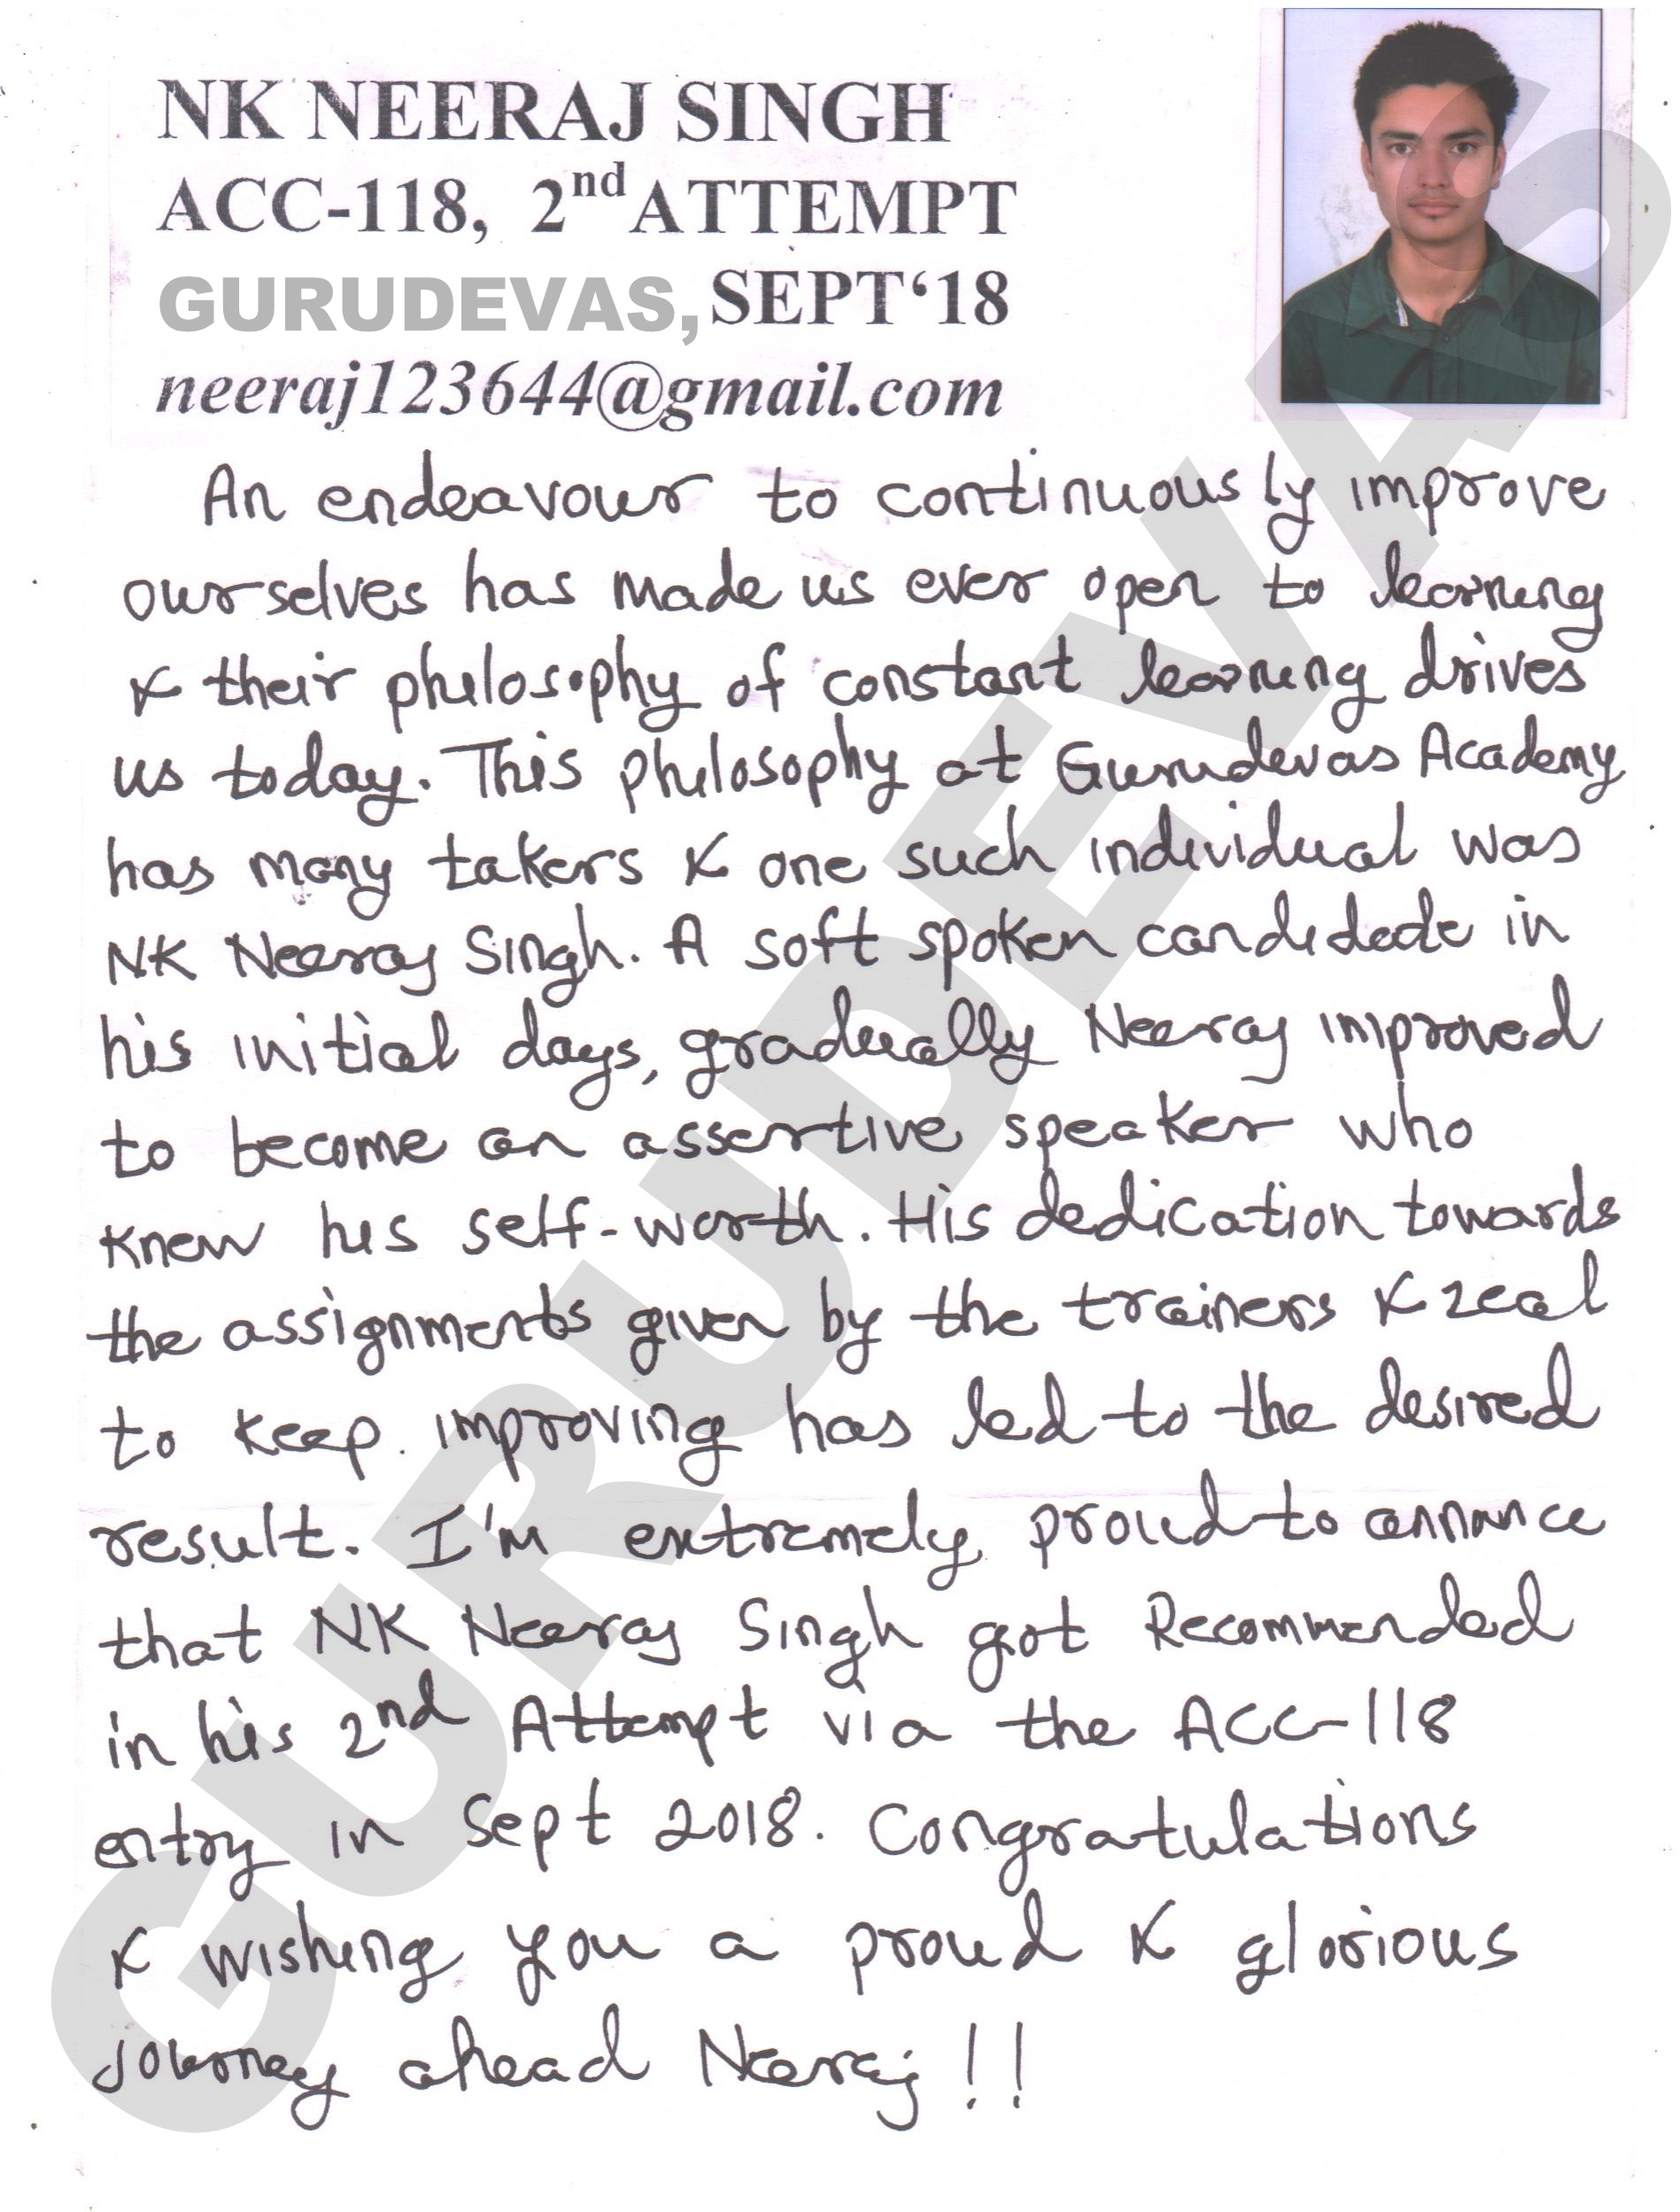 NK NEERAJ SINGH
ACC-118, 2nd ATTEMPT
GURUDEVAS, SEPT‘18
neeraj123644@gmail.com
An endeavour to continuously improve
ourselves has made us ever open to learning
& their philosophy of constant learning drives
us today. This philosophy at Gurudevas Academy
has many takers & one such individual was
NK Neeraj Singh. A soft spoken candidade in
his initial days, gradually Neeraj improved
to become an assertive speaker who
knew his self-worth. His dedication towards
the assignments given by the trainers & zeal
to keep improving has led to the desired
result. I'm extremely proud to annunce
that NK Neeraj Singh got Recommended
in his 2nd Attempt via the ACC-118
entry in Sept 2018. Congratulations
& wishing you a proud & glorious
journey ahead Neeraj!!
GURUDEVAS